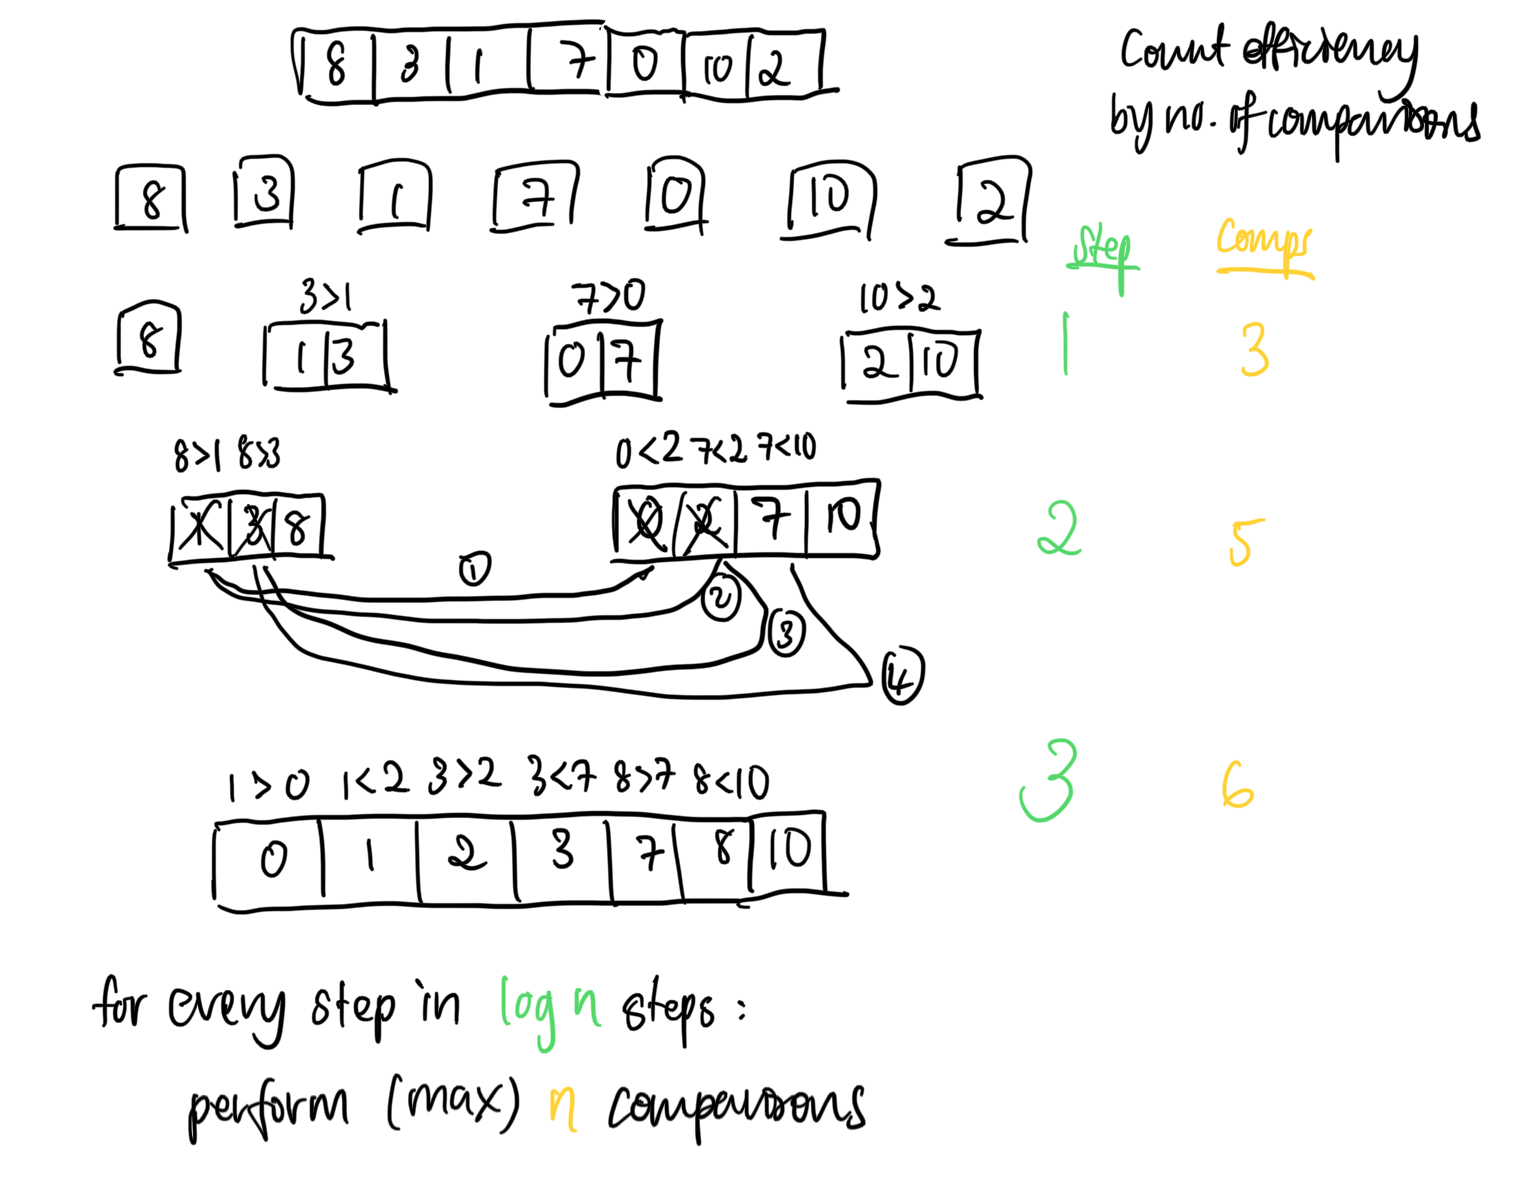 8 3 1 7 0 10 2
Count efficiency
by no. of comparisons
8 3 1 7 0 10 2
Step Comps
3>1 7>0 10>2
8 1 3 0 7 2 10 1 3
8>1 8>3 0<2 7<2 7<10
1 3 8 0 2 7 10 2 5
①
②
③
④
1>0 1<2 3>2 3<7 8>7 8<10 3 6
0 1 2 3 7 8 10
for every step in log n steps:
perform (max) n comparisons